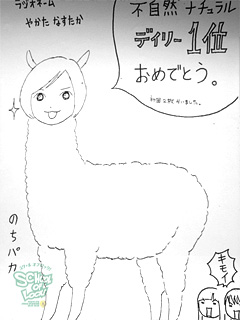 ラジオネーム
やかた なすたか
不自然 ナチュラル
デイリー 1位
おめでとう。
のちパカ
キモイ
SCHOOL OF LOCK!